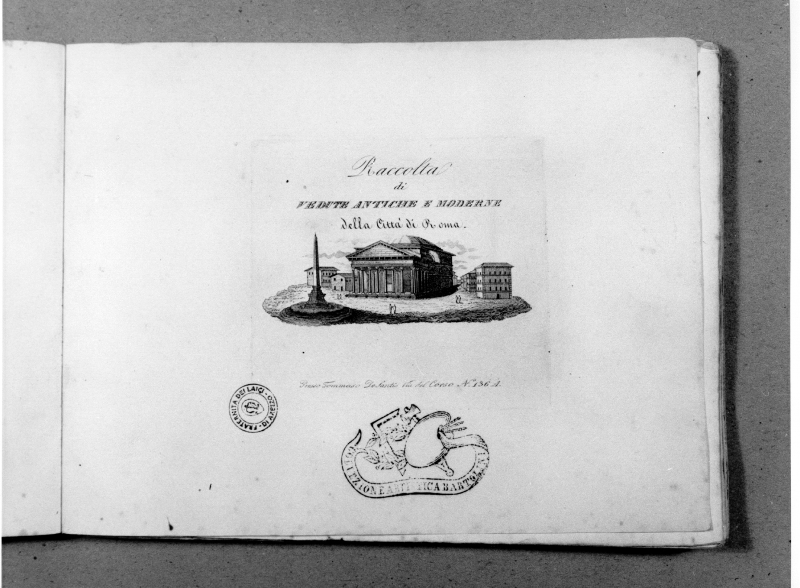 Raccolta
di
VEDUTE ANTICHE E MODERNE
della Città di Roma.
Presso Tommaso De Santis Via del Corso N.º 136 A.
FRATERNITA DEI LAICI · D'AREZZO ·
COLLEZIONE ARTISTICA BARTOLINI